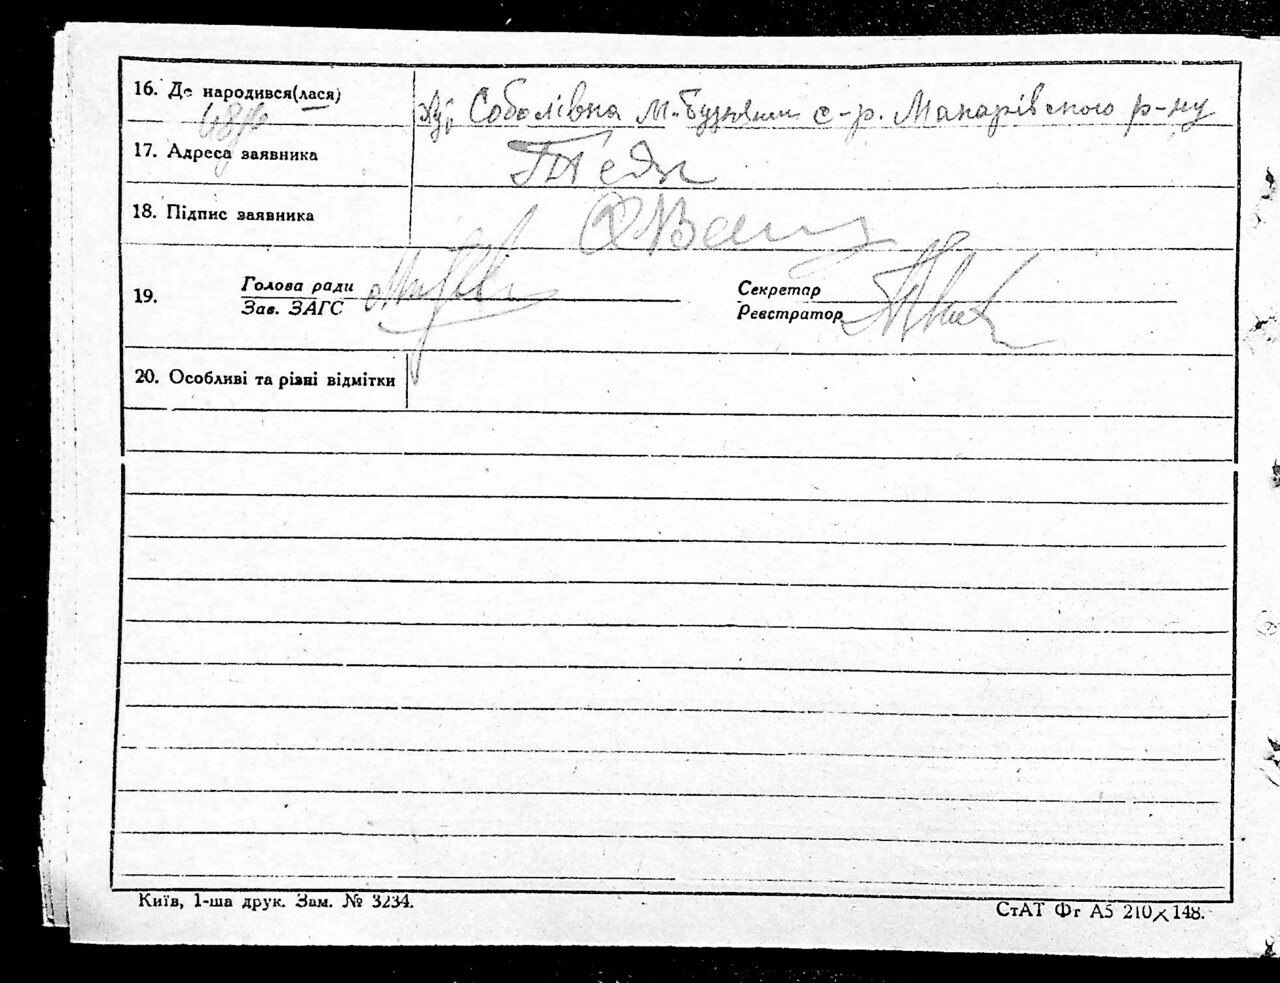 16. Де народився(лася) Хут. Соболівка М-Бузянської с-р. Макарівського р-ну
17. Адреса заявника
18. Підпис заявника
19. Голова ради Секретар
Зав. ЗАГС Реєстратор
20. Особливі та різні відмітки
Київ, 1-ша друк. Зам. № 3234.
СтАТ Фг А5 210×148.